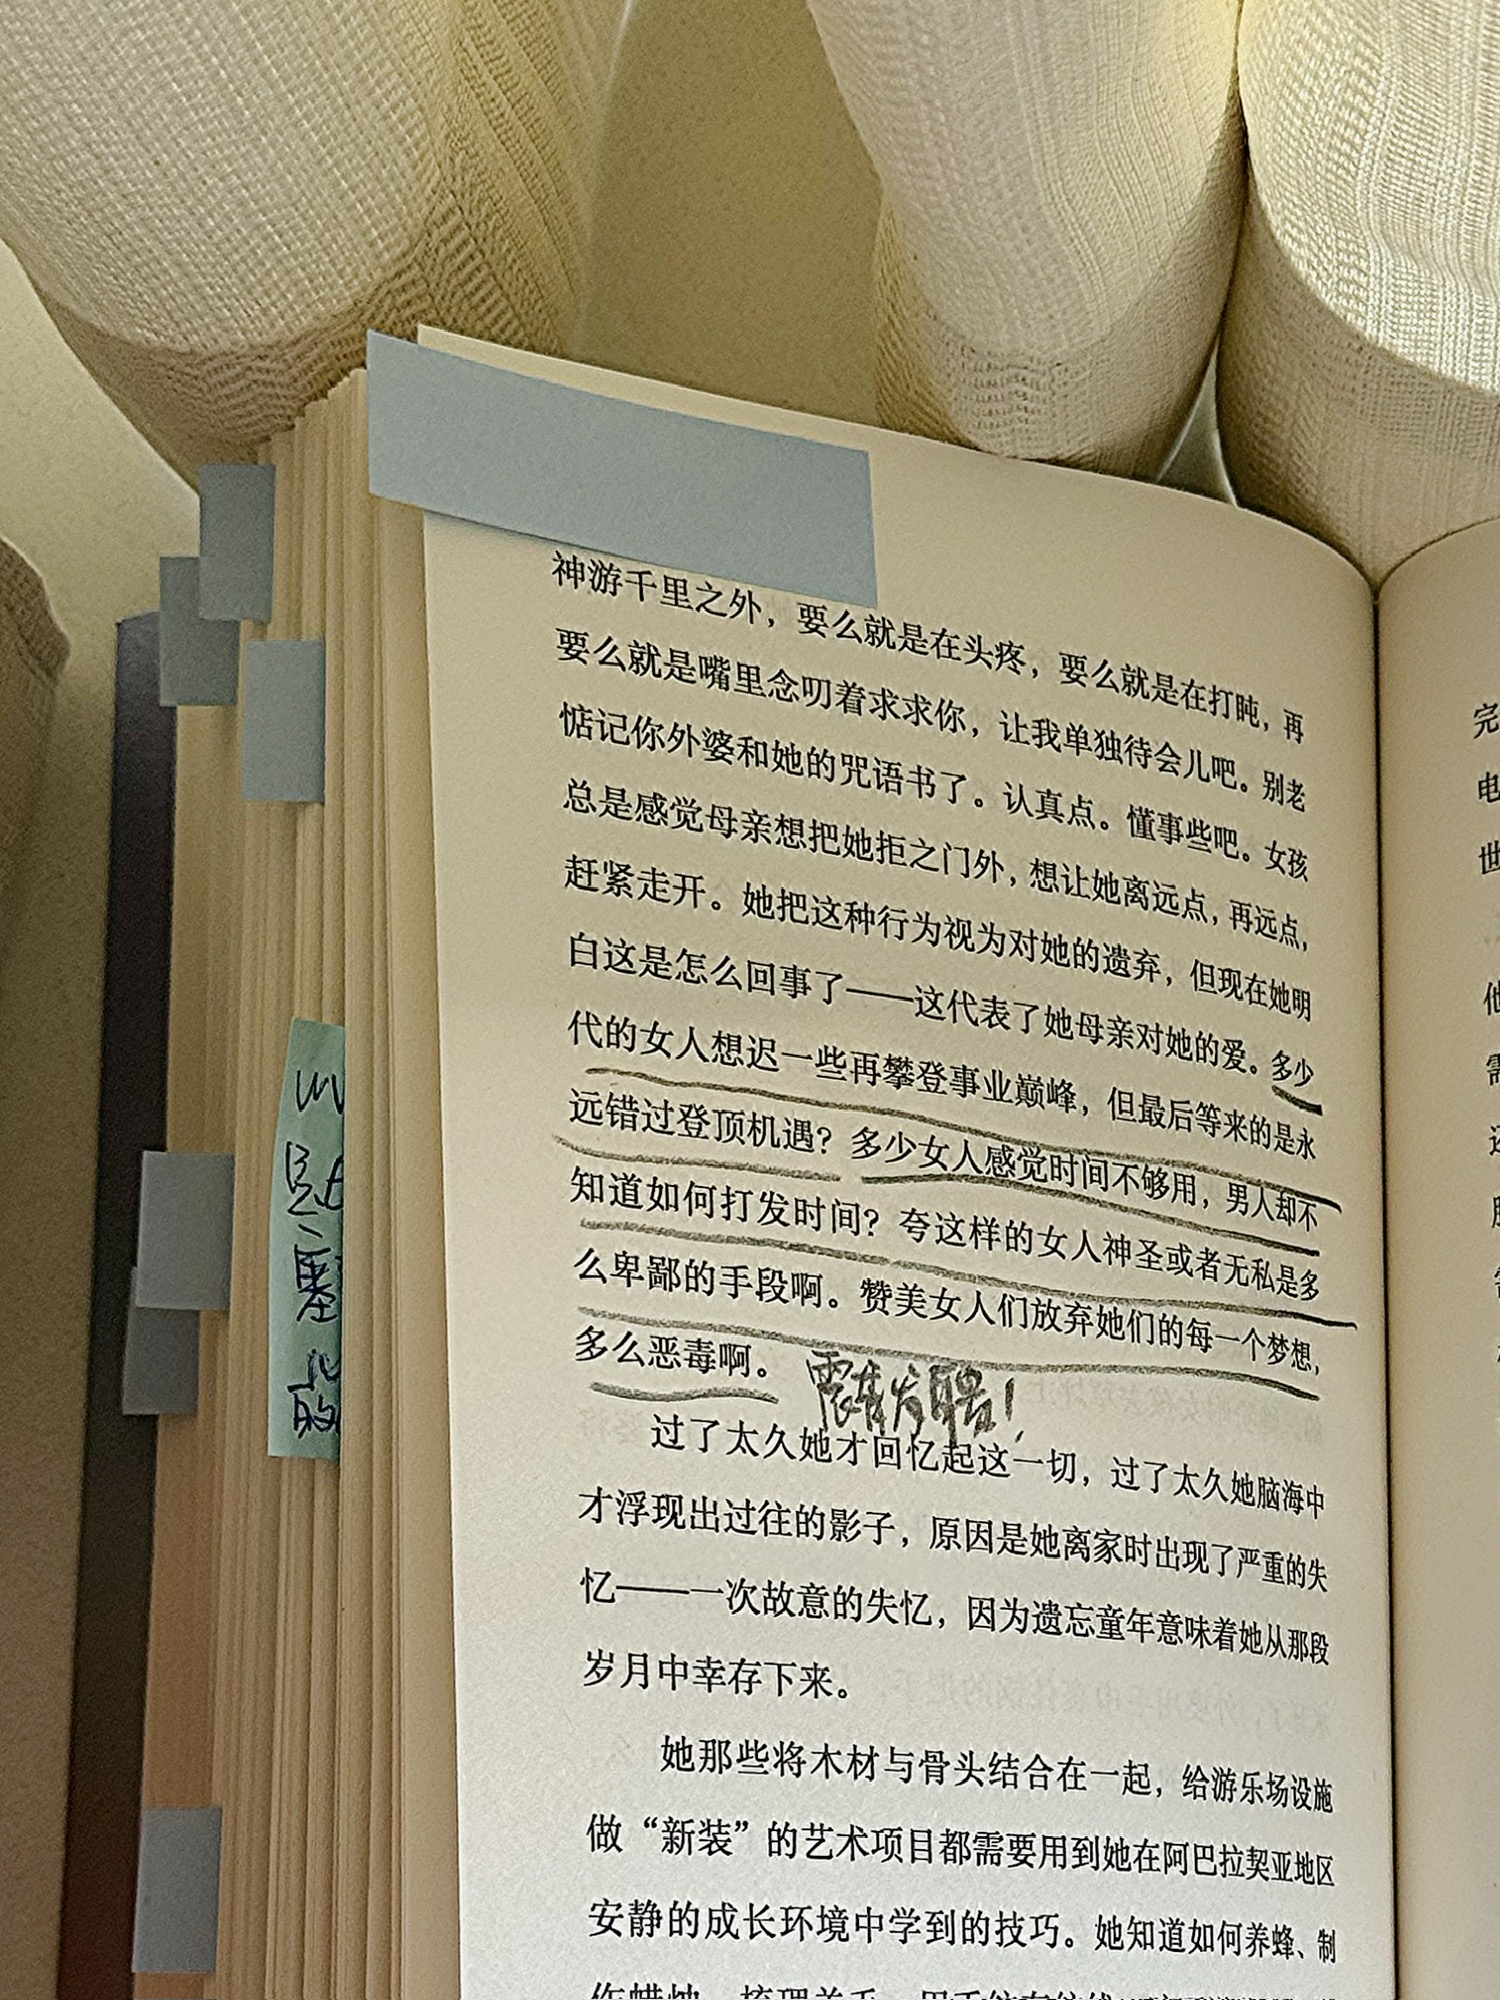 神游千里之外，要么就是在头疼，要么就是在打盹，再
要么就是嘴里念叨着求求你，让我单独待会儿吧。别老
惦记你外婆和她的咒语书了。认真点。懂事些吧。女孩
总是感觉母亲想把她拒之门外，想让她离远点，再远点，
赶紧走开。她把这种行为视为对她的遗弃，但现在她明
白这是怎么回事了——这代表了她母亲对她的爱。多少
代的女人想迟一些再攀登事业巅峰，但最后等来的是永
远错过登顶机遇？多少女人感觉时间不够用，男人却不
知道如何打发时间？夸这样的女人神圣或者无私是多
么卑鄙的手段啊。赞美女人们放弃她们的每一个梦想，
多么恶毒啊。
震耳发聩！
过了太久她才回忆起这一切，过了太久她脑海中
才浮现出过往的影子，原因是她离家时出现了严重的失
忆——一次故意的失忆，因为遗忘童年意味着她从那段
岁月中幸存下来。
她那些将木材与骨头结合在一起，给游乐场设施
做“新装”的艺术项目都需要用到她在阿巴拉契亚地区
安静的成长环境中学到的技巧。她知道如何养蜂、制
完
电
世
的